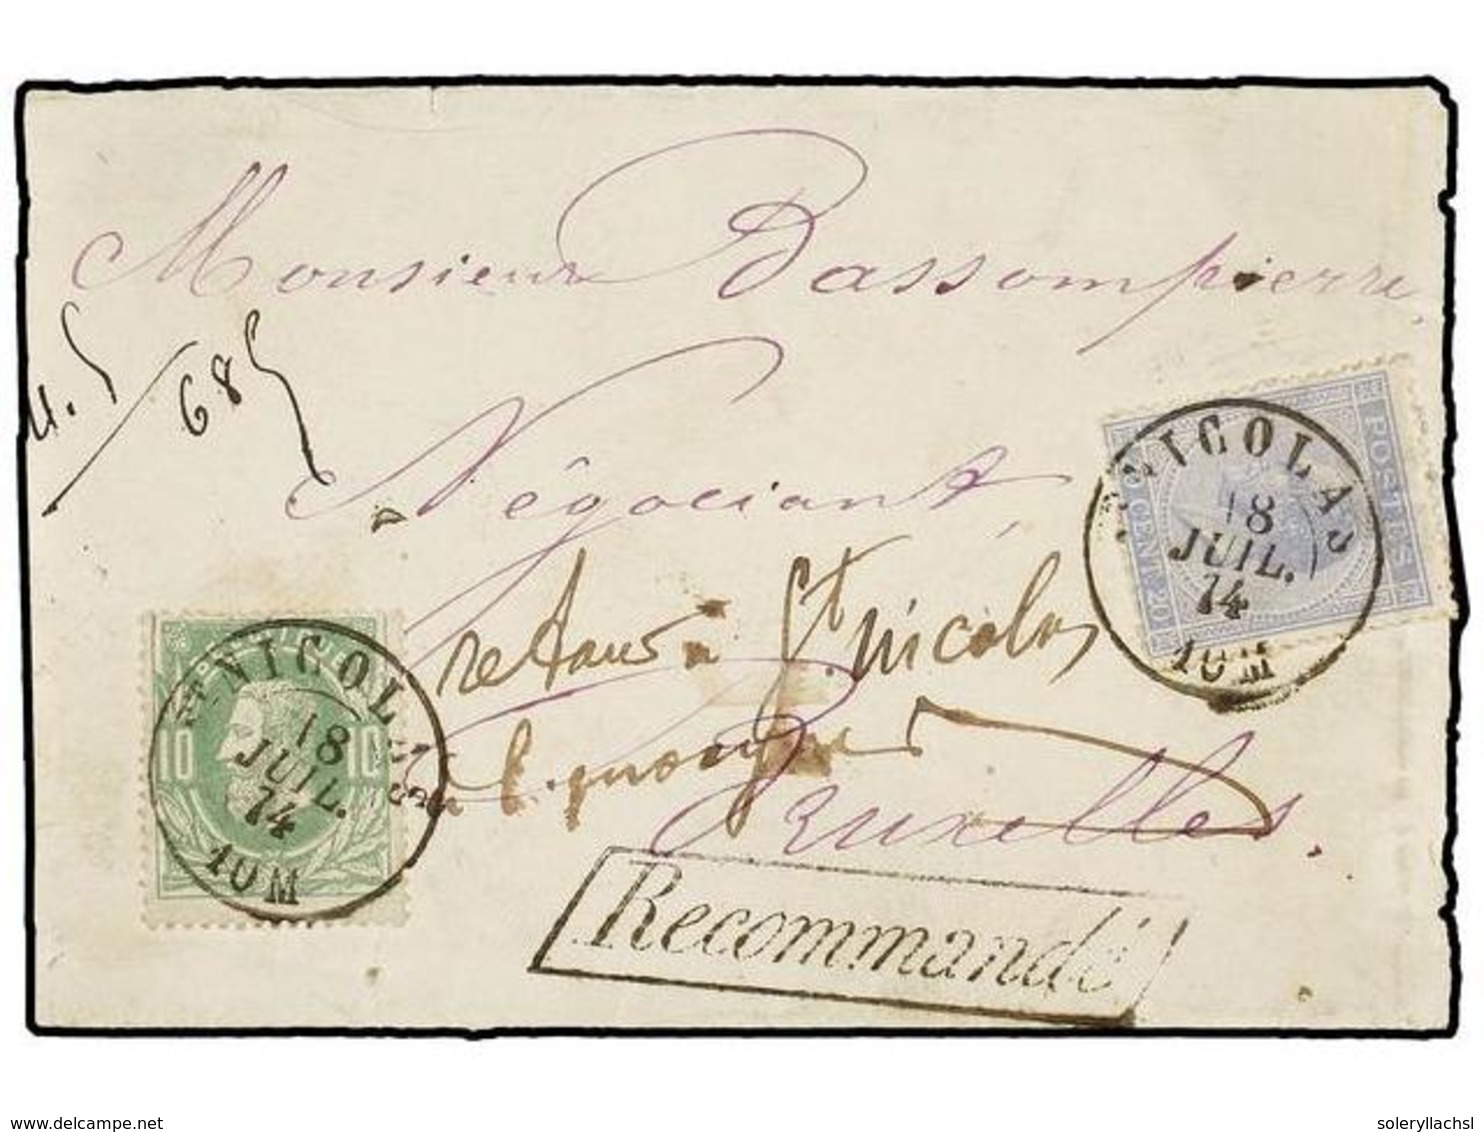 Monsieur Bassompierre
685
Négociant,
retour à St. nicolas
Bruxelles.
Recommandé
ST NICOLAS
18
JUIL.
74
10 M
10
10
NICOLAS
18
JUIL.
74
10 M
POSTES
delcampe.net
soleryllachsl